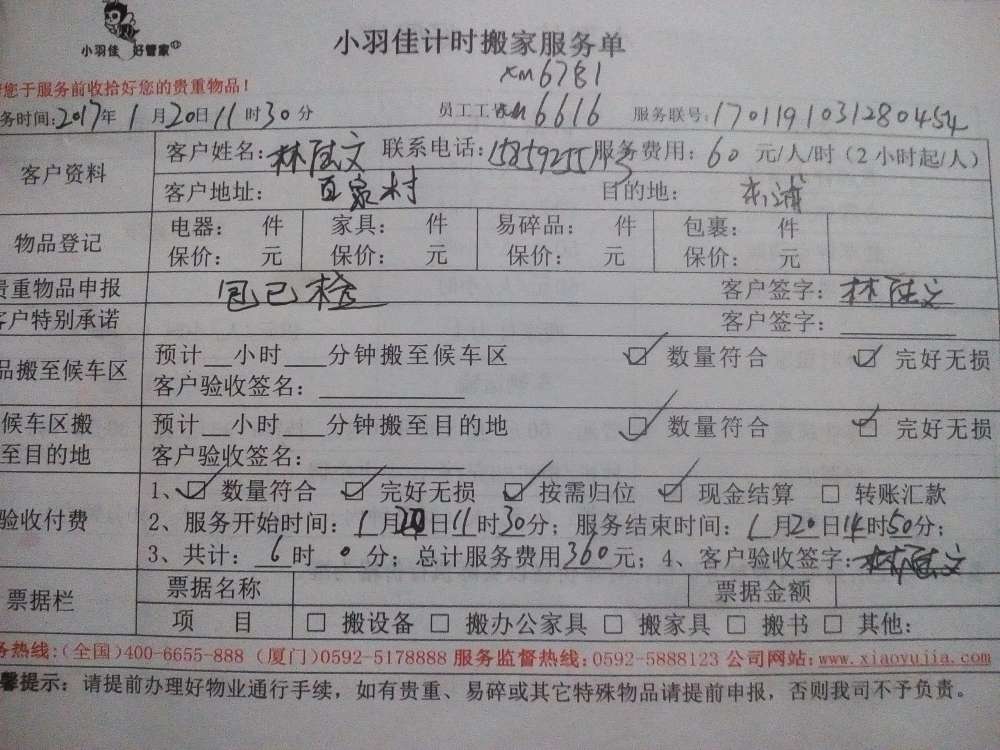 小羽佳 好管家
小羽佳计时搬家服务单
xm6781
您于服务前收拾好您的贵重物品!
务时间:2017年1月20日11时30分 员工工号:xm6616 服务联号:1701191031280454
客户资料
客户姓名: 林 文 联系电话:158592551 服务费用:60元/人/时(2小时起/人)
客户地址: 村 目的地:
物品登记
电器: 件 家具: 件 易碎品: 件 包裹: 件
保价: 元 保价: 元 保价: 元 保价: 元
贵重物品申报 包已检 客户签字:林 文
客户特别承诺 客户签字:
品搬至候车区
预计__小时___分钟搬至候车区 ☑ 数量符合 ☑ 完好无损
客户验收签名:
候车区搬
至目的地
预计__小时___分钟搬至目的地 ☑ 数量符合 ☑ 完好无损
客户验收签名:
验收付费
1、☑ 数量符合 ☑ 完好无损 ☑ 按需归位 ☑ 现金结算 □ 转账汇款
2、服务开始时间:1月20日11时30分;服务结束时间:1月20日14时50分;
3、共计:6时0分;总计服务费用360元;4、客户验收签字:林 文
票据栏
票据名称 票据金额
项 目 □ 搬设备 □ 搬办公家具 □ 搬家具 □ 搬书 □ 其他:
务热线:(全国)400-6655-888 (厦门)0592-5178888 服务监督热线:0592-5888123 公司网站:www.xiaoyujia.com
馨提示:请提前办理好物业通行手续,如有贵重、易碎或其它特殊物品请提前申报,否则我司不予负责。